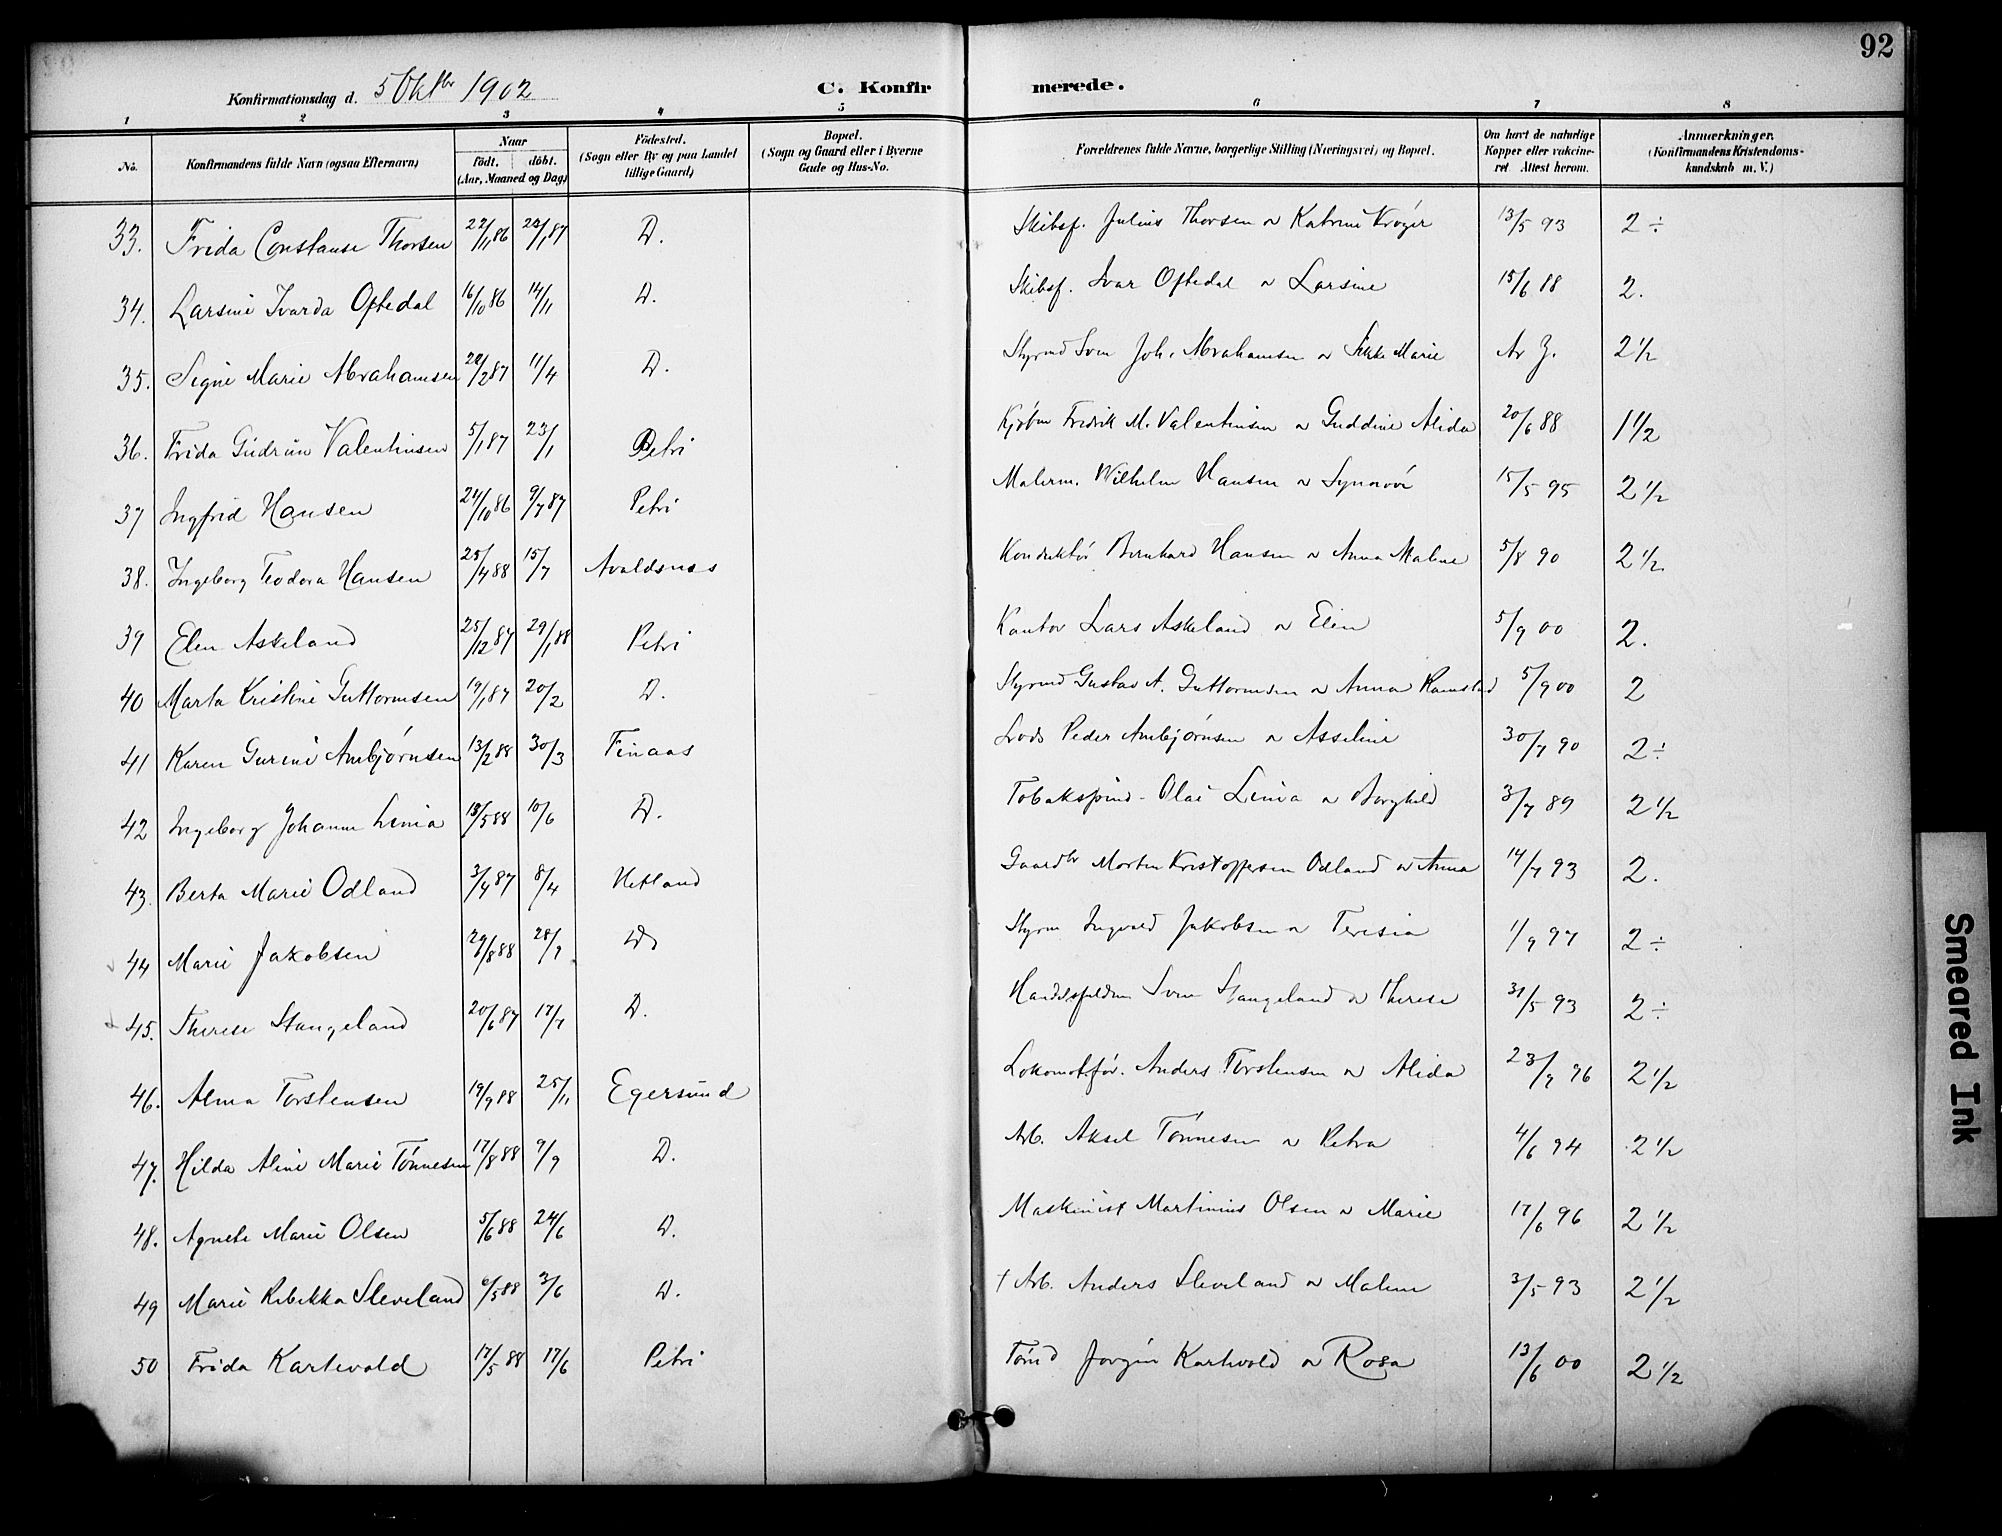 92
Konfirmationsdag d. 5 Oktbr 1902
C. Konfirmerede.
1 2 3 4 5 6 7 8
No. Konfirmandens fulde Navn (ogsaa Efternavn) Naar födt. döbt. (Aar, Maaned og Dag) Födested. (Sogn eller By og paa Landet tillige Gaard) Bopæl. (Sogn og Gaard eller i Byerne Gade og Hus-No. Forældrenes fulde Navne, borgerlige Stilling (Næringsvei) og Bopæl. Om havt de naturlige Kopper eller vakcineret. Attest herom. Anmærkninger. (Konfirmandens Kristendomskundskab m. V.)
33. Frida Constanse Thorsen 22/11 86 /1 87 D. Skibsf. Julius Thorsen o Katrine Krøger 13/5 93 2 ÷
34. Larsine Ivarda Oftedal 16/10 86 14/11 D. Skibsf. Ivar Oftedal o Larsine 15/6 88 2.
35. Signe Marie Abrahamsen 22/2 87 11/4 D. Styrmd Sven Joh. Abrahamsen o Marie Ar 2 1/2
36. Frida Gudrun Valentinsen 5/1 87 23/1 Petri Kjøbm Fredrik M. Valentinsen o Guddine Alida 20/6 88 1 1/2
37 Ingfrid Hansen 24/10 86 9/7 87 Petri Malerm. Wilhelm Hansen o Synnøve 15/5 95 2 1/2
38. Ingeborg Teodora Hansen 25/4 88 15/7 Avaldsnes Konduktør Bernhard Hansen o Anna Maline 5/8 90 2 1/2
39 Elen Askeland 25/12 87 29/1 88 Petri Kantor Lars Askeland o Elen 5/9 00 2.
40 Marta Kristine Guttormsen 19/1 87 20/2 D. Styrmd Gustav A. Guttormsen o Anna Ramstad 5/9 00 2
41 Karen Gurine Ambjørnsen 13/2 88 30/3 Finaas Lods Peder Ambjørnsen o Asseline 30/7 90 2 ÷
42 Ingeborg Johanne Lima 18/5 88 10/6 D. Tobakspind- Olai Lima o Borghild 3/7 89 2 1/2
43. Berta Marie Odland 3/4 87 8/4 Hetland Gaardbr Morten Kristoffersen Odland o Anna 14/7 93 2.
44 Marie Jakobsen 29/8 88 28/9 D Styrm Ingvald Jakobsen o Teresia 1/9 97 2 ÷
45. Therese Stangeland 20/6 87 17/7 D. Handelsfuldm Sven Stangeland o Therese 31/5 93 2 ÷
46. Alma Torstensen 19/9 88 25/11 Egersund Lokomotfør. Anders Torstensen o Alida 23/9 96 2 1/2
47. Hilda Aline Marie Tønnesen 17/8 88 9/9 D. Arb. Aksel Tønnesen o Petra 4/6 94 2 1/2
48. Agnete Marie Olsen 5/6 88 24/6 D. Maskinist Martinius Olsen o Marie 17/6 96 2 1/2
49 Marie Rebekka Sleveland 6/5 88 3/6 D. † Arb. Anders Sleveland o Malene 3/5 93 2 1/2
50 Frida Kartevold 17/5 88 17/6 Petri Tømd Jørgen Kartevold o Rosa 13/6 00 2 1/2
Smeared Ink